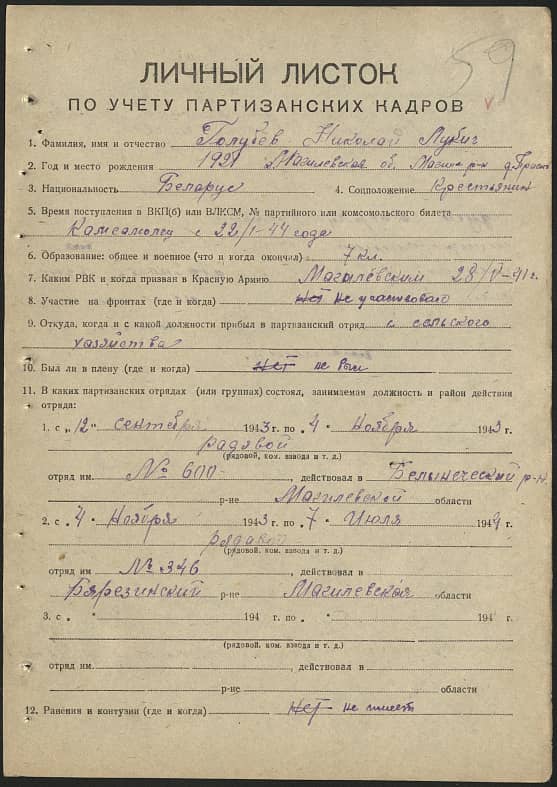 59
ЛИЧНЫЙ ЛИСТОК
ПО УЧЕТУ ПАРТИЗАНСКИХ КАДРОВ
1. Фамилия, имя и отчество Голубев Николай Лукич
2. Год и место рождения Магилевская об.
3. Национальность Беларус 4. Соцположение Крестьянин
5. Время поступления в ВКП(б) или ВЛКСМ, № партийного или комсомольского билета
Камсамолец с 22/I-44 года
6. Образование: общее и военное (что и когда окончил) 7 кл.
7. Каким РВК и когда призван в Красную Армию Магилевским
8. Участие на фронтах (где и когда) нет не участвовал
9. Откуда, когда и с какой должности прибыл в партизанский отряд с сельского
хозяйства
10. Был ли в плену (где и когда) нет не был
11. В каких партизанских отрядах (или группах) состоял, занимаемая должность и район действия
отряда:
1. с „12" сентября 1943 г. по „4" Ноября 1943 г.
радавой
(рядовой, ком. взвода и т. д.)
отряд им № 600 , действовал в Белыничский р-н
р-не Магилевской области
2. с „4" Ноября 1943 г. по „7" Июля 1944 г.
рядавой
(рядовой, ком. взвода и т. д.)
отряд им № 346 , действовал в
Бярезинский р-не Магилевская области
3. с „ " 194 г. по „ " 194 г.
(рядовой, ком. взвода и т. д.)
отряд им. , действовал в
р-не области
12. Ранения и контузии (где и когда) нет не имеет